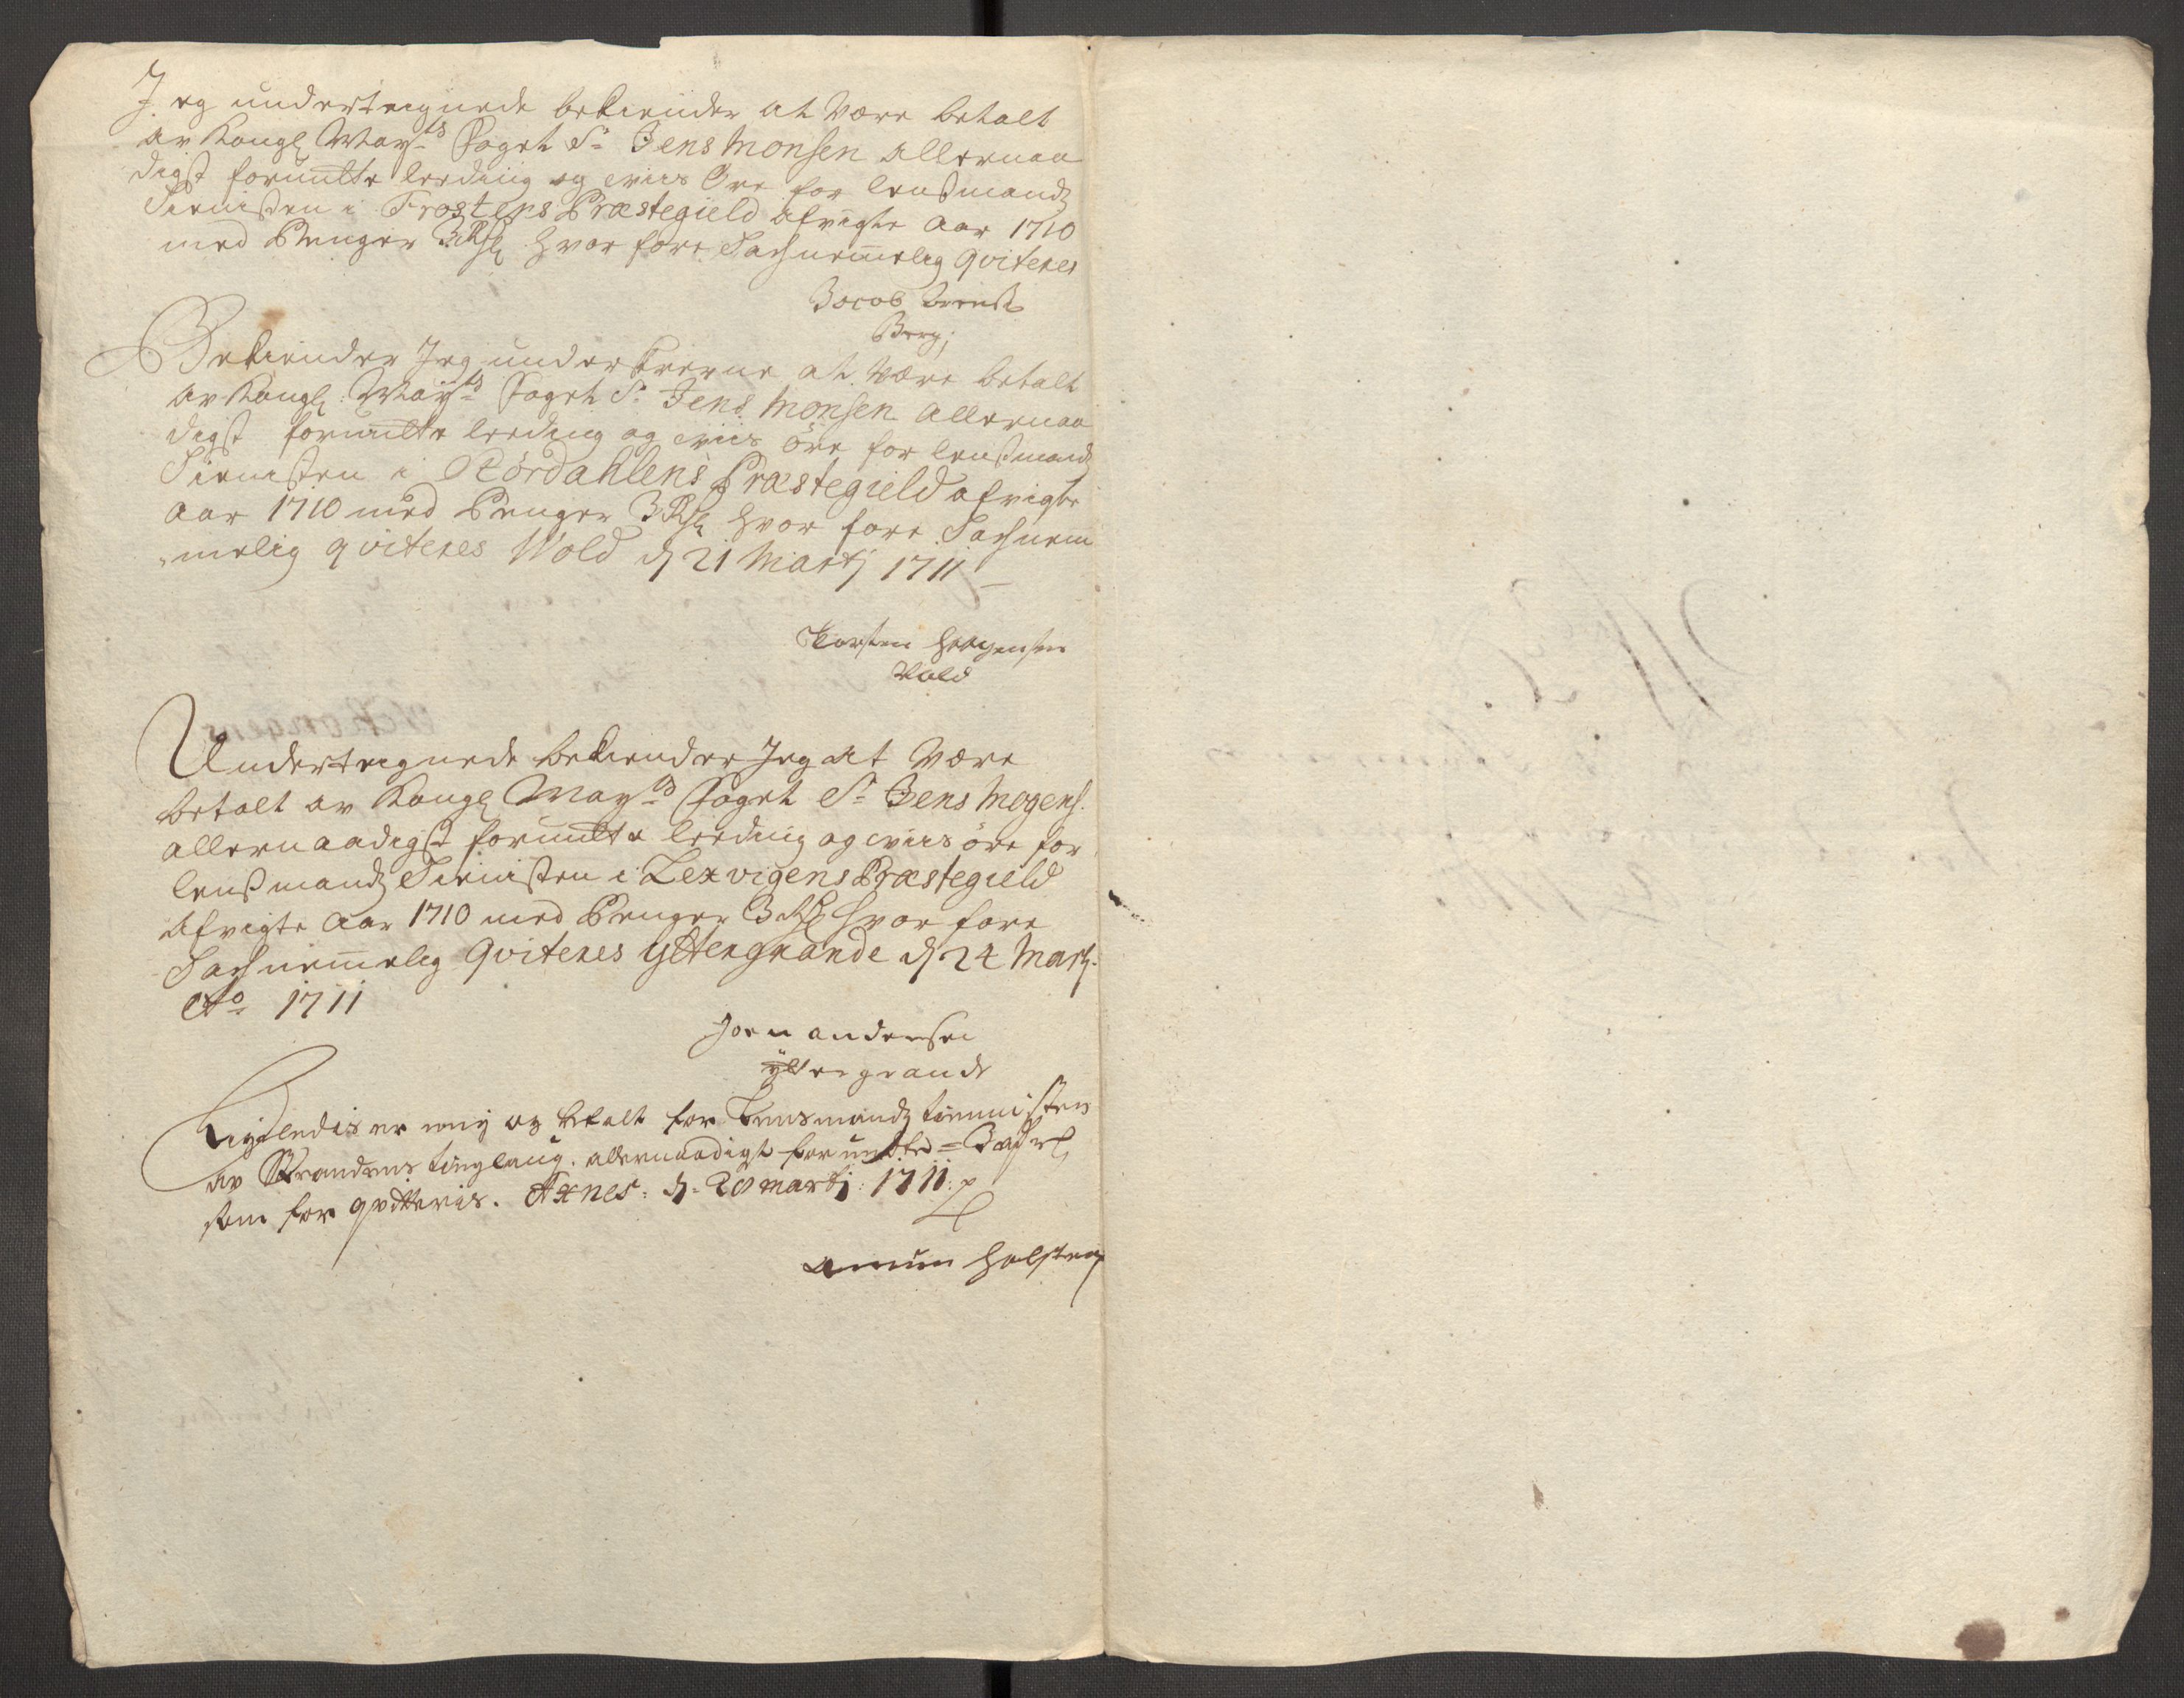 Jeg underteignede bekiender at Være betalt
av Kongl Mayts Foget Sr Jens Monsen Allernaa
digst forundte leeding og Ore for lensmandz
Tienisten i Frostens Præstegield afvigte Aar 1710
med Penger 3 Rdl hvor fore Tachnemmelig qviteres
Jacob
Berg;
Bekiender Jeg under at Være betalt
av Kongl: Mayts Foget Sr Jens Monsen Allernaa
digst forundte leeding og öre for lensmandz
Tienisten i Stördahlens Præstegield afvigte
Aar 1710 med Penger 3 Rdl hvor fore Tachnem
melig qviteres Wold d 21 Martj 1711
Torsten
Vold
Underteignede bekiender Jeg at Være
betalt av Kongl Mayts Foget Sr Jens Mogens.
Allernaadigst forundte leeding og öre for
lensmandz Tienisten i Lexvigens Præstegield
Afvigte Aar 1710 med Penger 3 Rdl hvor fore
Tachnemmelig Qviteres Yttergrande d 24 Martj.
Ao 1711
Joen andersen
yttergrande
er mig og betalt for Lensmandz tiennisten
av Strandens tinglaug. allernaadigst forundte =
som for qvitteris. Axnes: d: 20 martj: 1711:
Amun Holsten